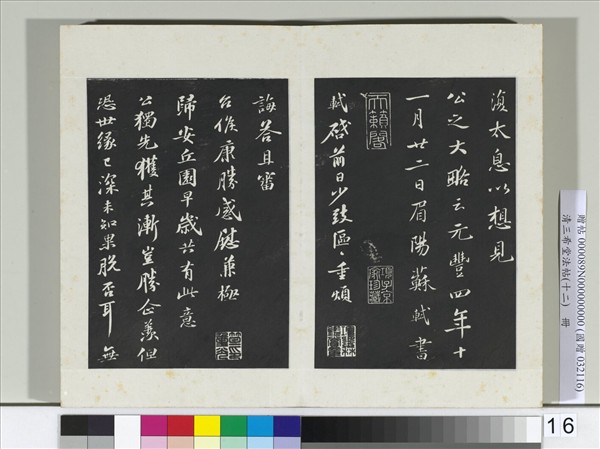 復太息以想見
公之大略云元豐四年十
一月廿二日眉陽蘇軾書
天籟閣
項子京家珍藏
軾啓前日少致區〻重煩
誨荅且審
台候康勝感慰兼極
歸安丘園早歲共有此意
公獨先獲其漸豈勝企羨但
恐世緣已深未知果脫否耳無
贈帖 000089N000000000 (國贈 032116)
清三希堂法帖(十二) 冊
16